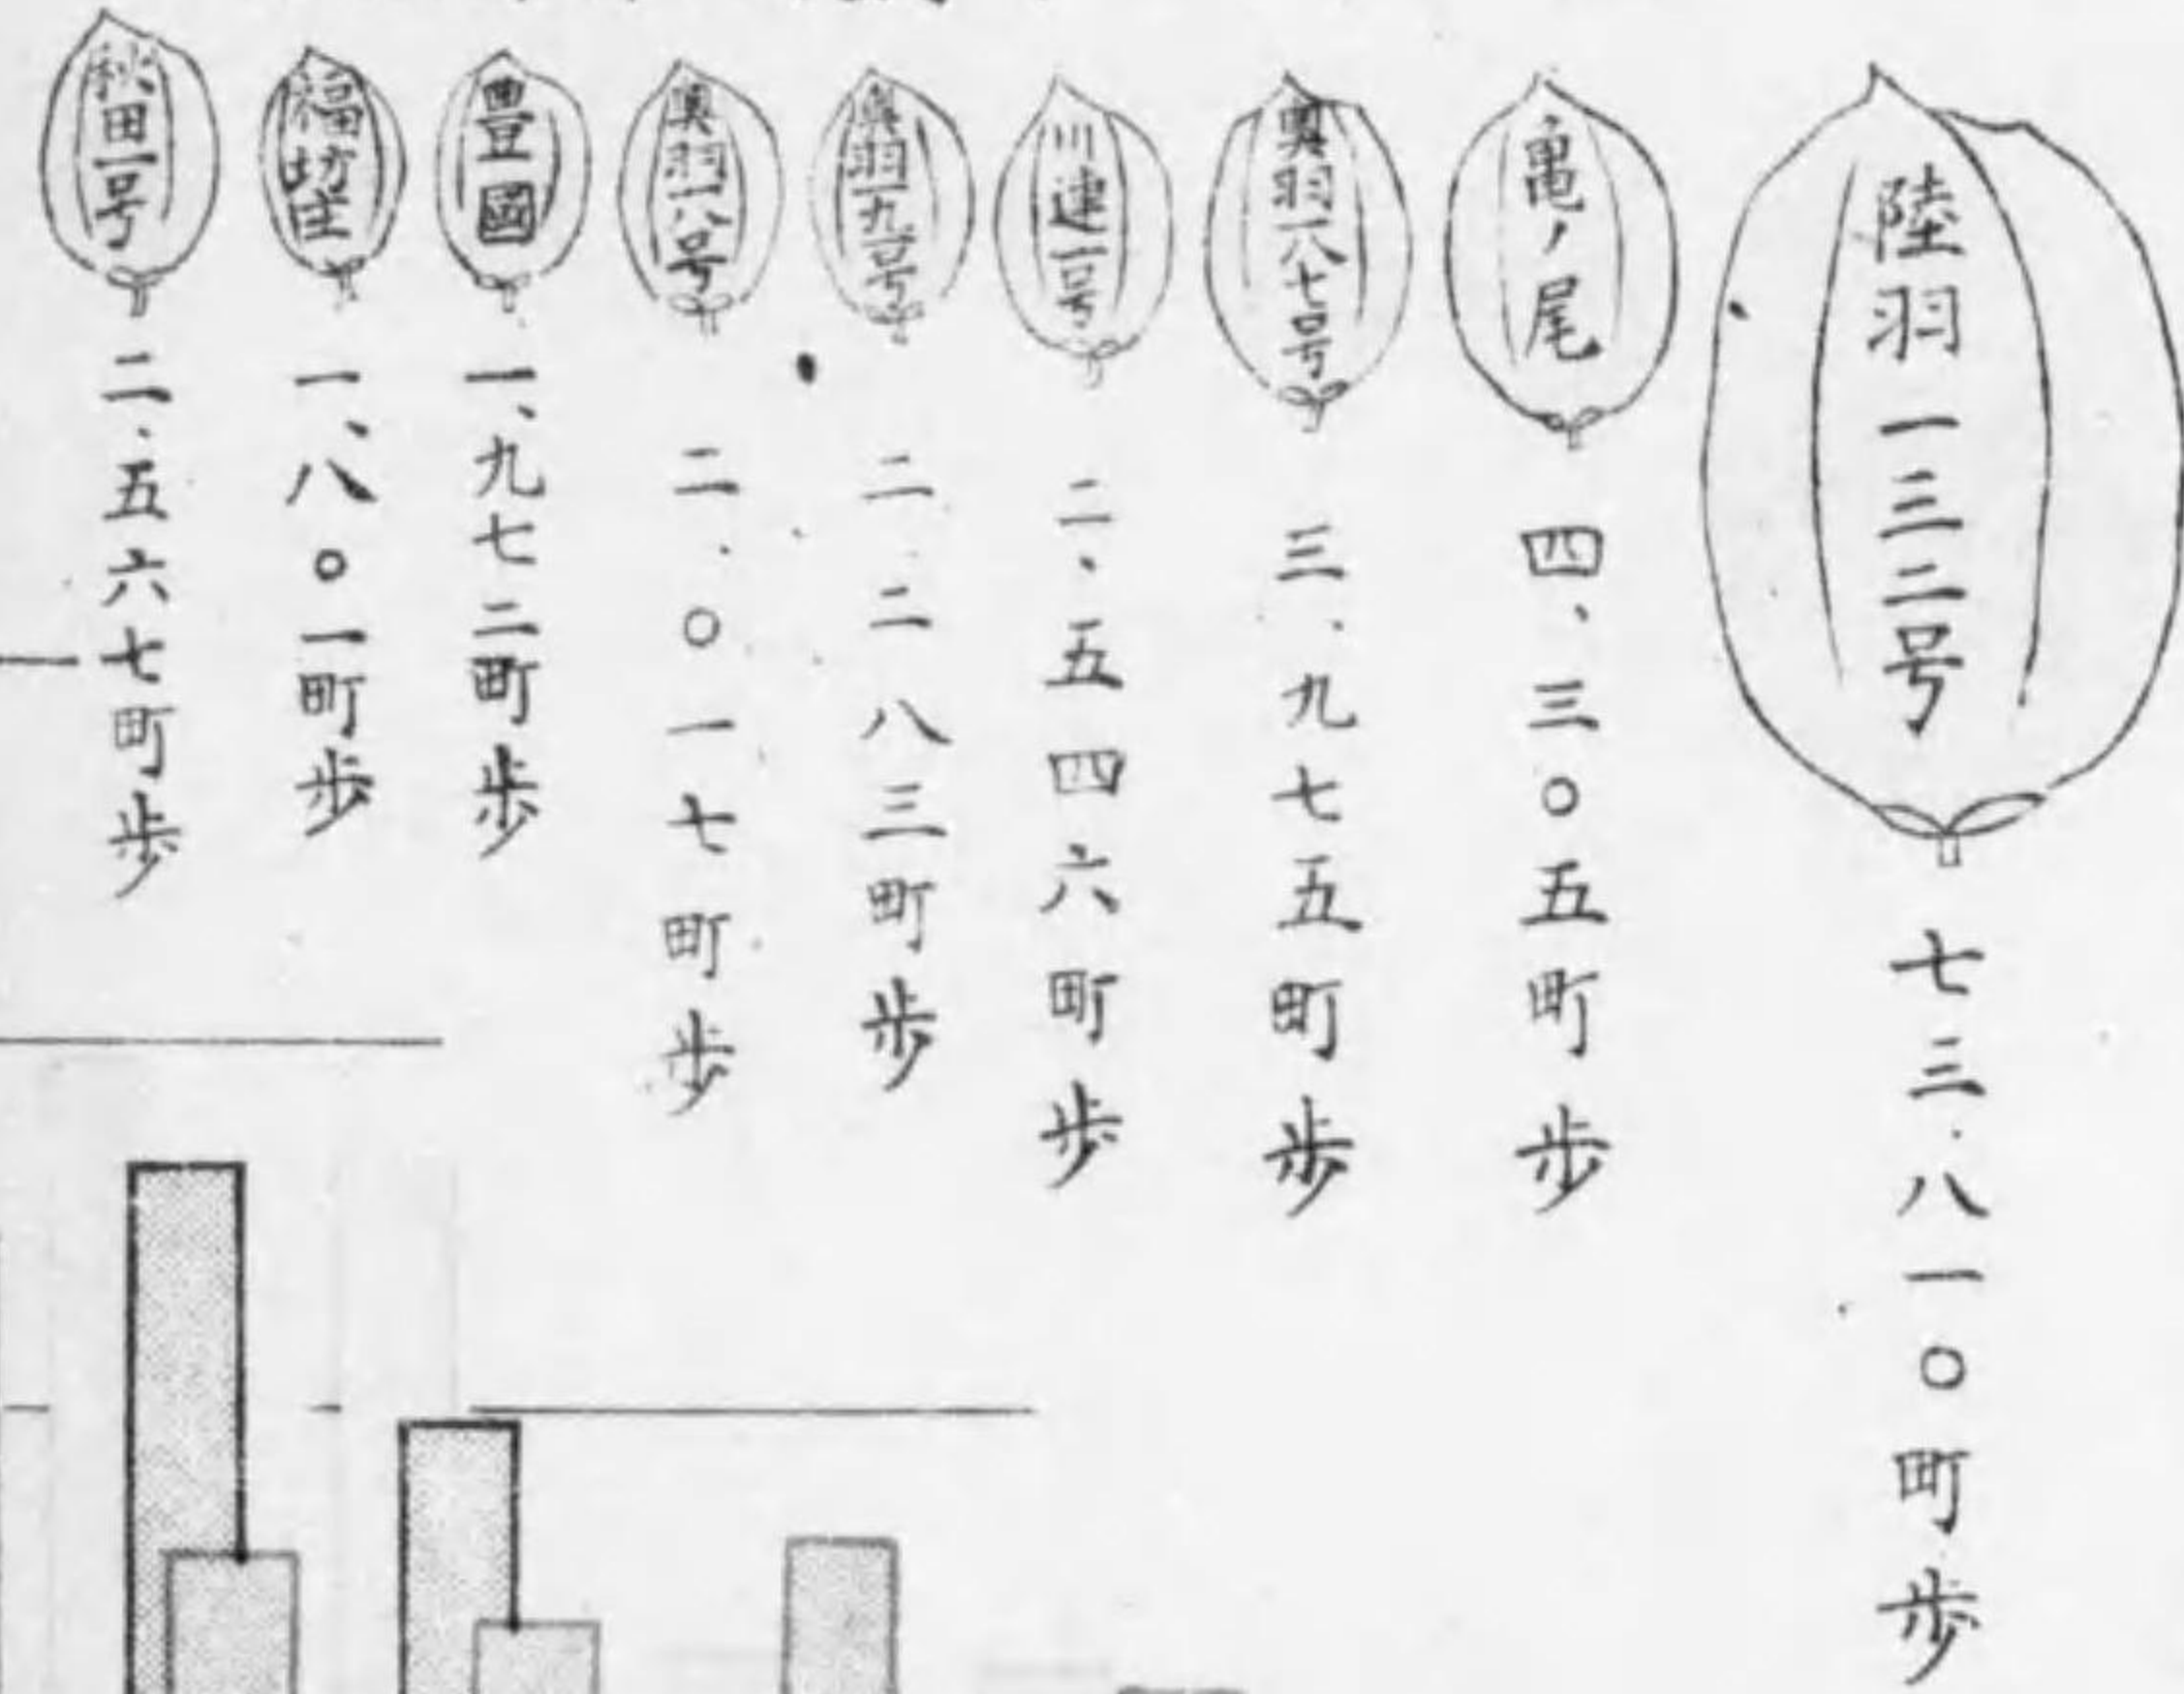 陸羽一三二号
七三.八一〇町歩
亀ノ尾
四、三〇五町歩
奥羽一八七号
三.九七五町歩
川連一号
二.五四六町歩
奥羽一九号
二.二八三町歩
奥羽一八号
二.〇一七町歩
豊國
一、九七二町歩
福坊主
一、八〇一町歩
秋田一号
二.五六七町歩